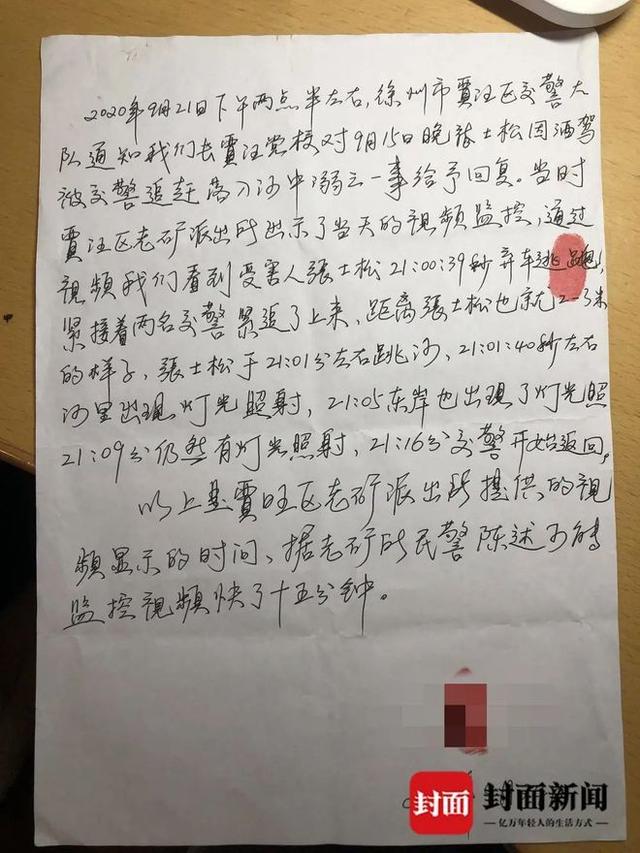 2020年9月21日下午两点半左右,徐州市贾汪区交警大
队通知我们去贾汪党校对9月15日晚张士松因酒驾
被交警追赶落入沙中溺亡一事给予回复。当时
贾汪区老矿派出所出示了当天的视频监控,通过
视频我们看到受害人張士松21:00:39秒弃车逃跑,
紧接着两名交警紧追了上来,距离張士松也就2-3米
的样子,張士松于21:01分左右跳沙,21:01:40秒左右
沙里出现灯光照射,21:05东岸也出现了灯光照
21:09分仍然有灯光照射,21:16分交警开始返回。
以上是賈旺区老矿派出所提供的视
频显示的时间、据老矿所民警陈述
监控視频快了十五分钟。
封面 封面新闻
亿万年轻人的生活方式